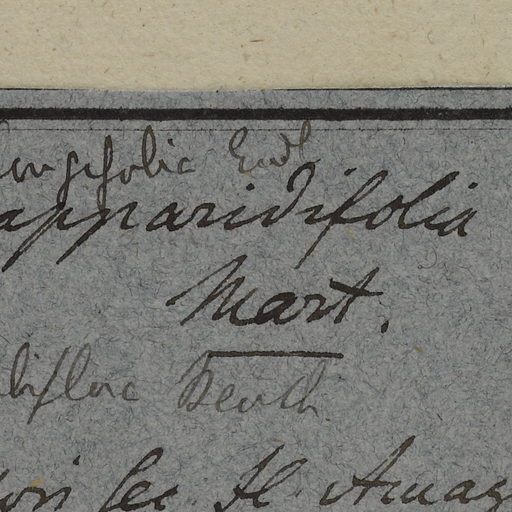 longifolia Endl
apparidifolia
Mart.
biflora Benth
sec. fl. Amaz